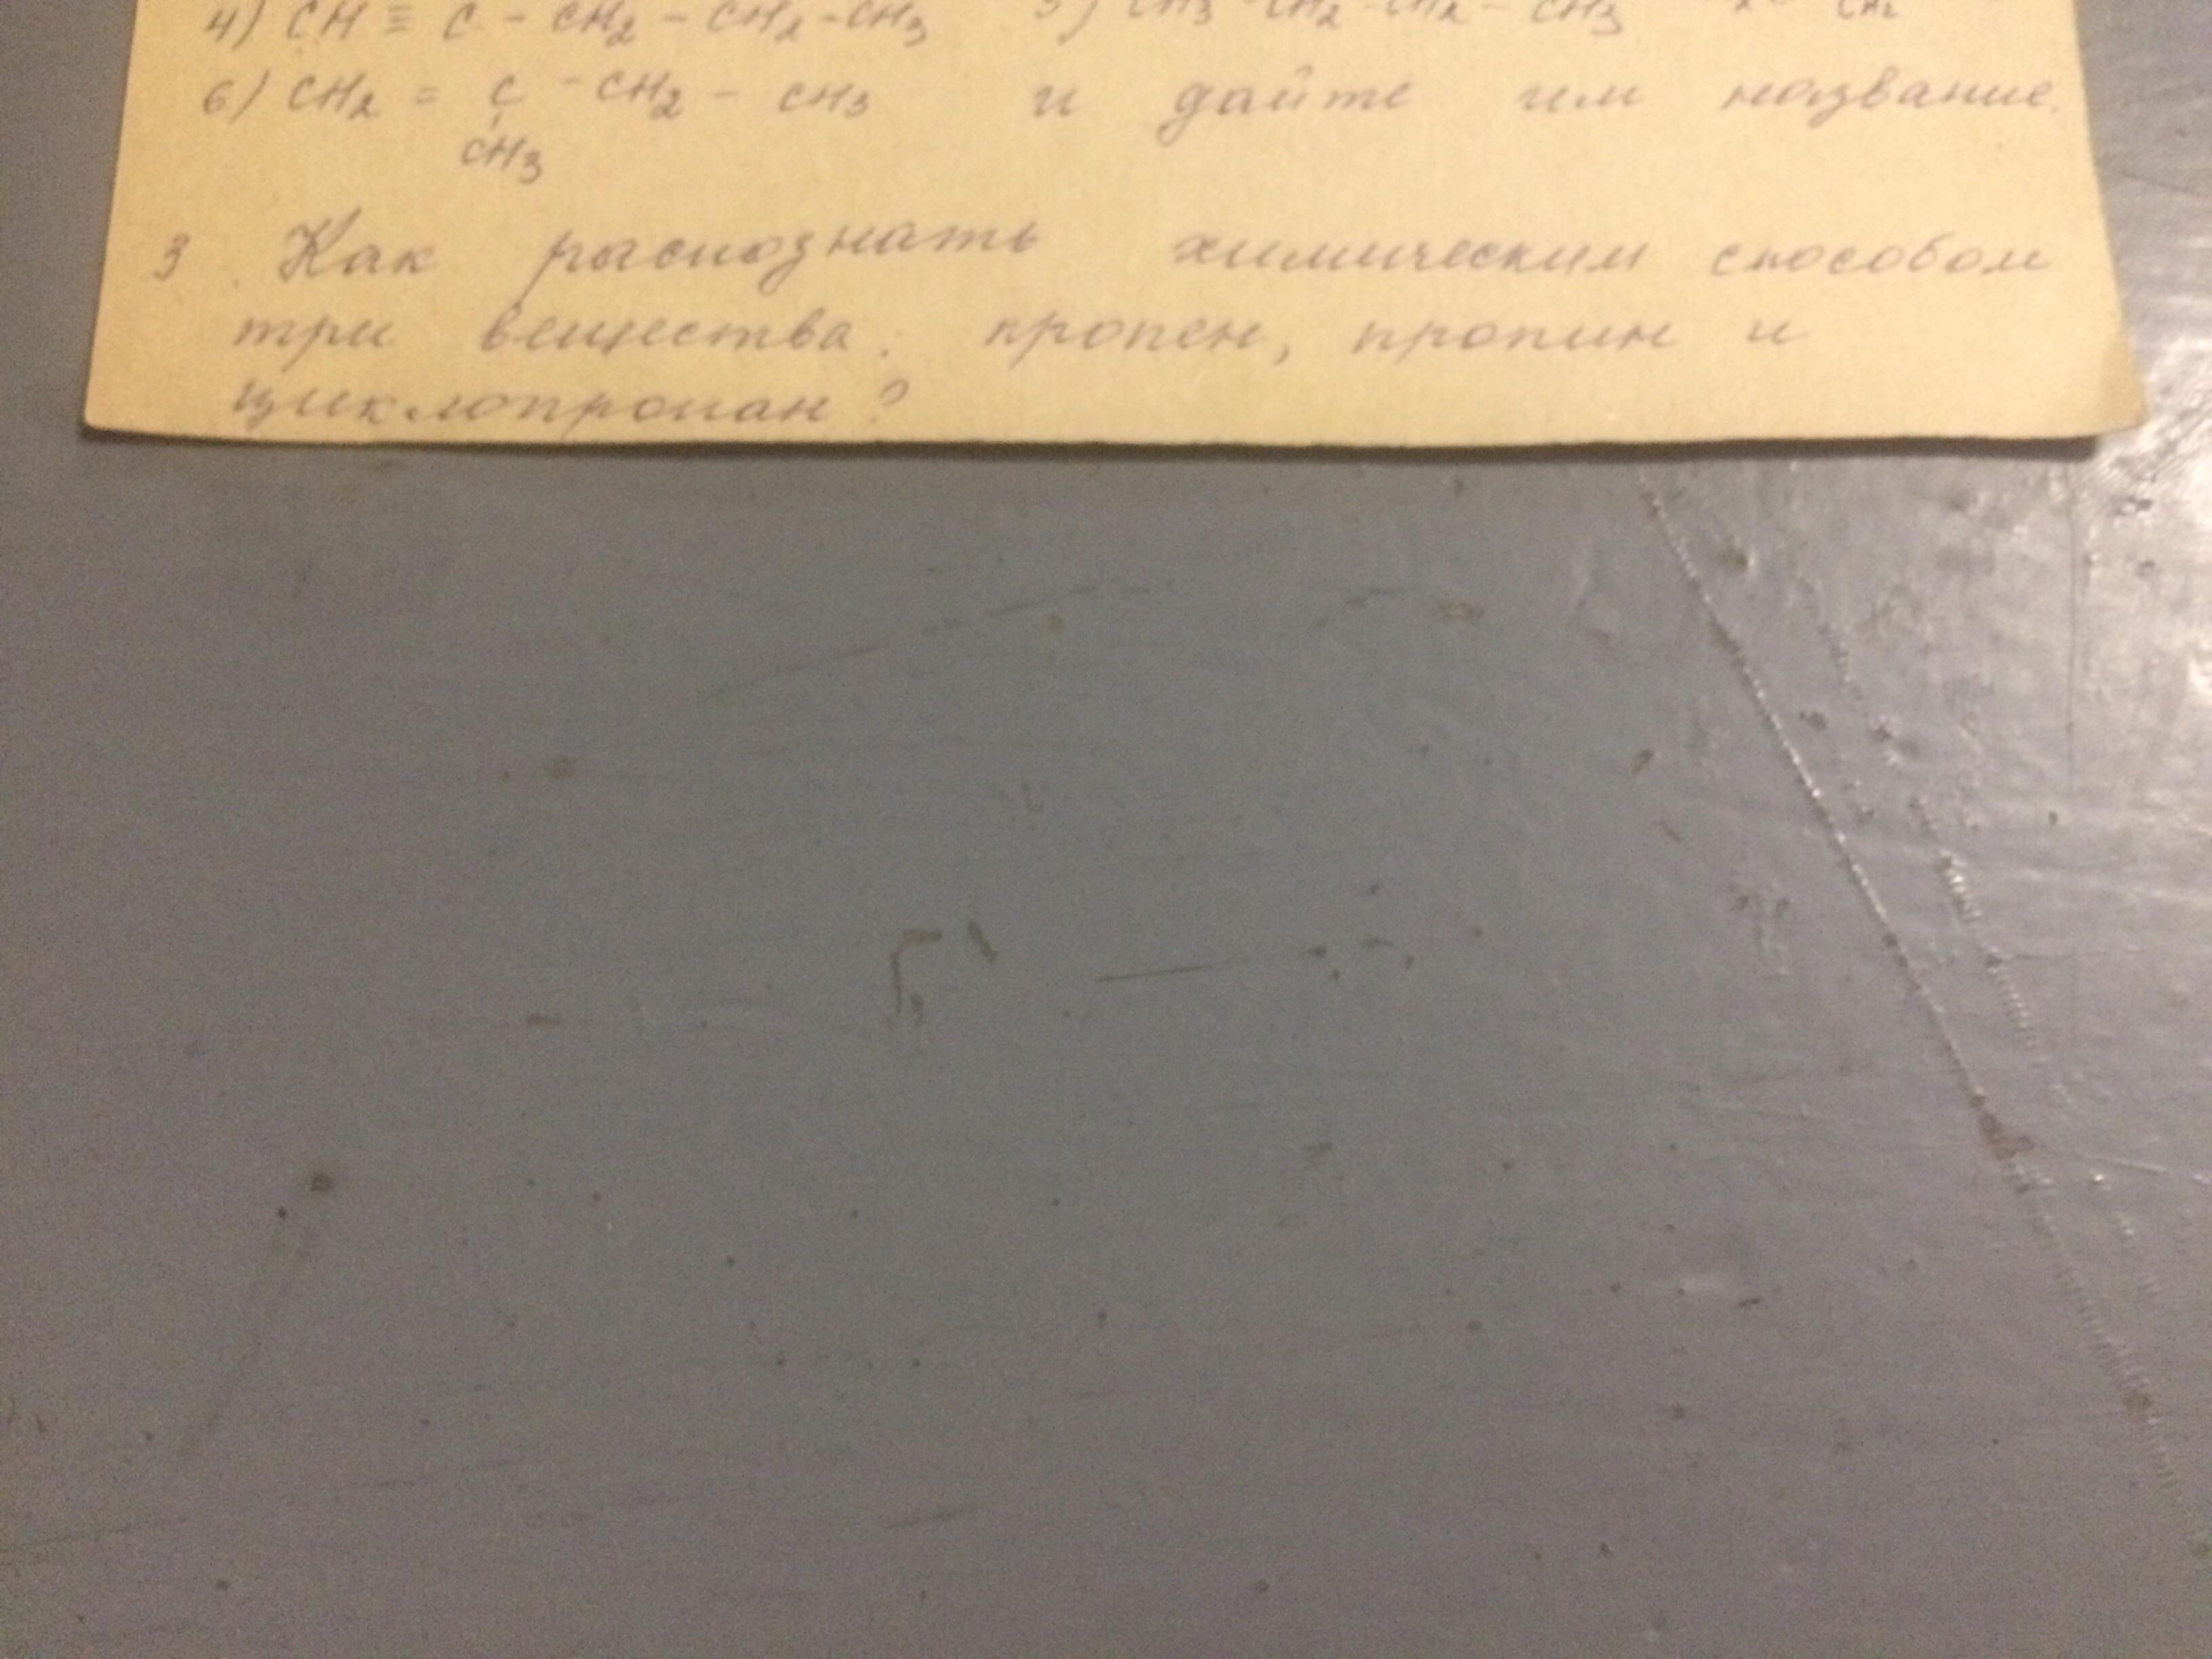 4) CH ≡ C - CH2 - CH2 - CH3 5) CH3 - CH2 - CH2 - CH3
CH2
6) CH2 = C - CH2 - CH3 и дайте им название.
CH3
3 Как распознать химическим способом
три вещества: пропен, пропин и
циклопропан?